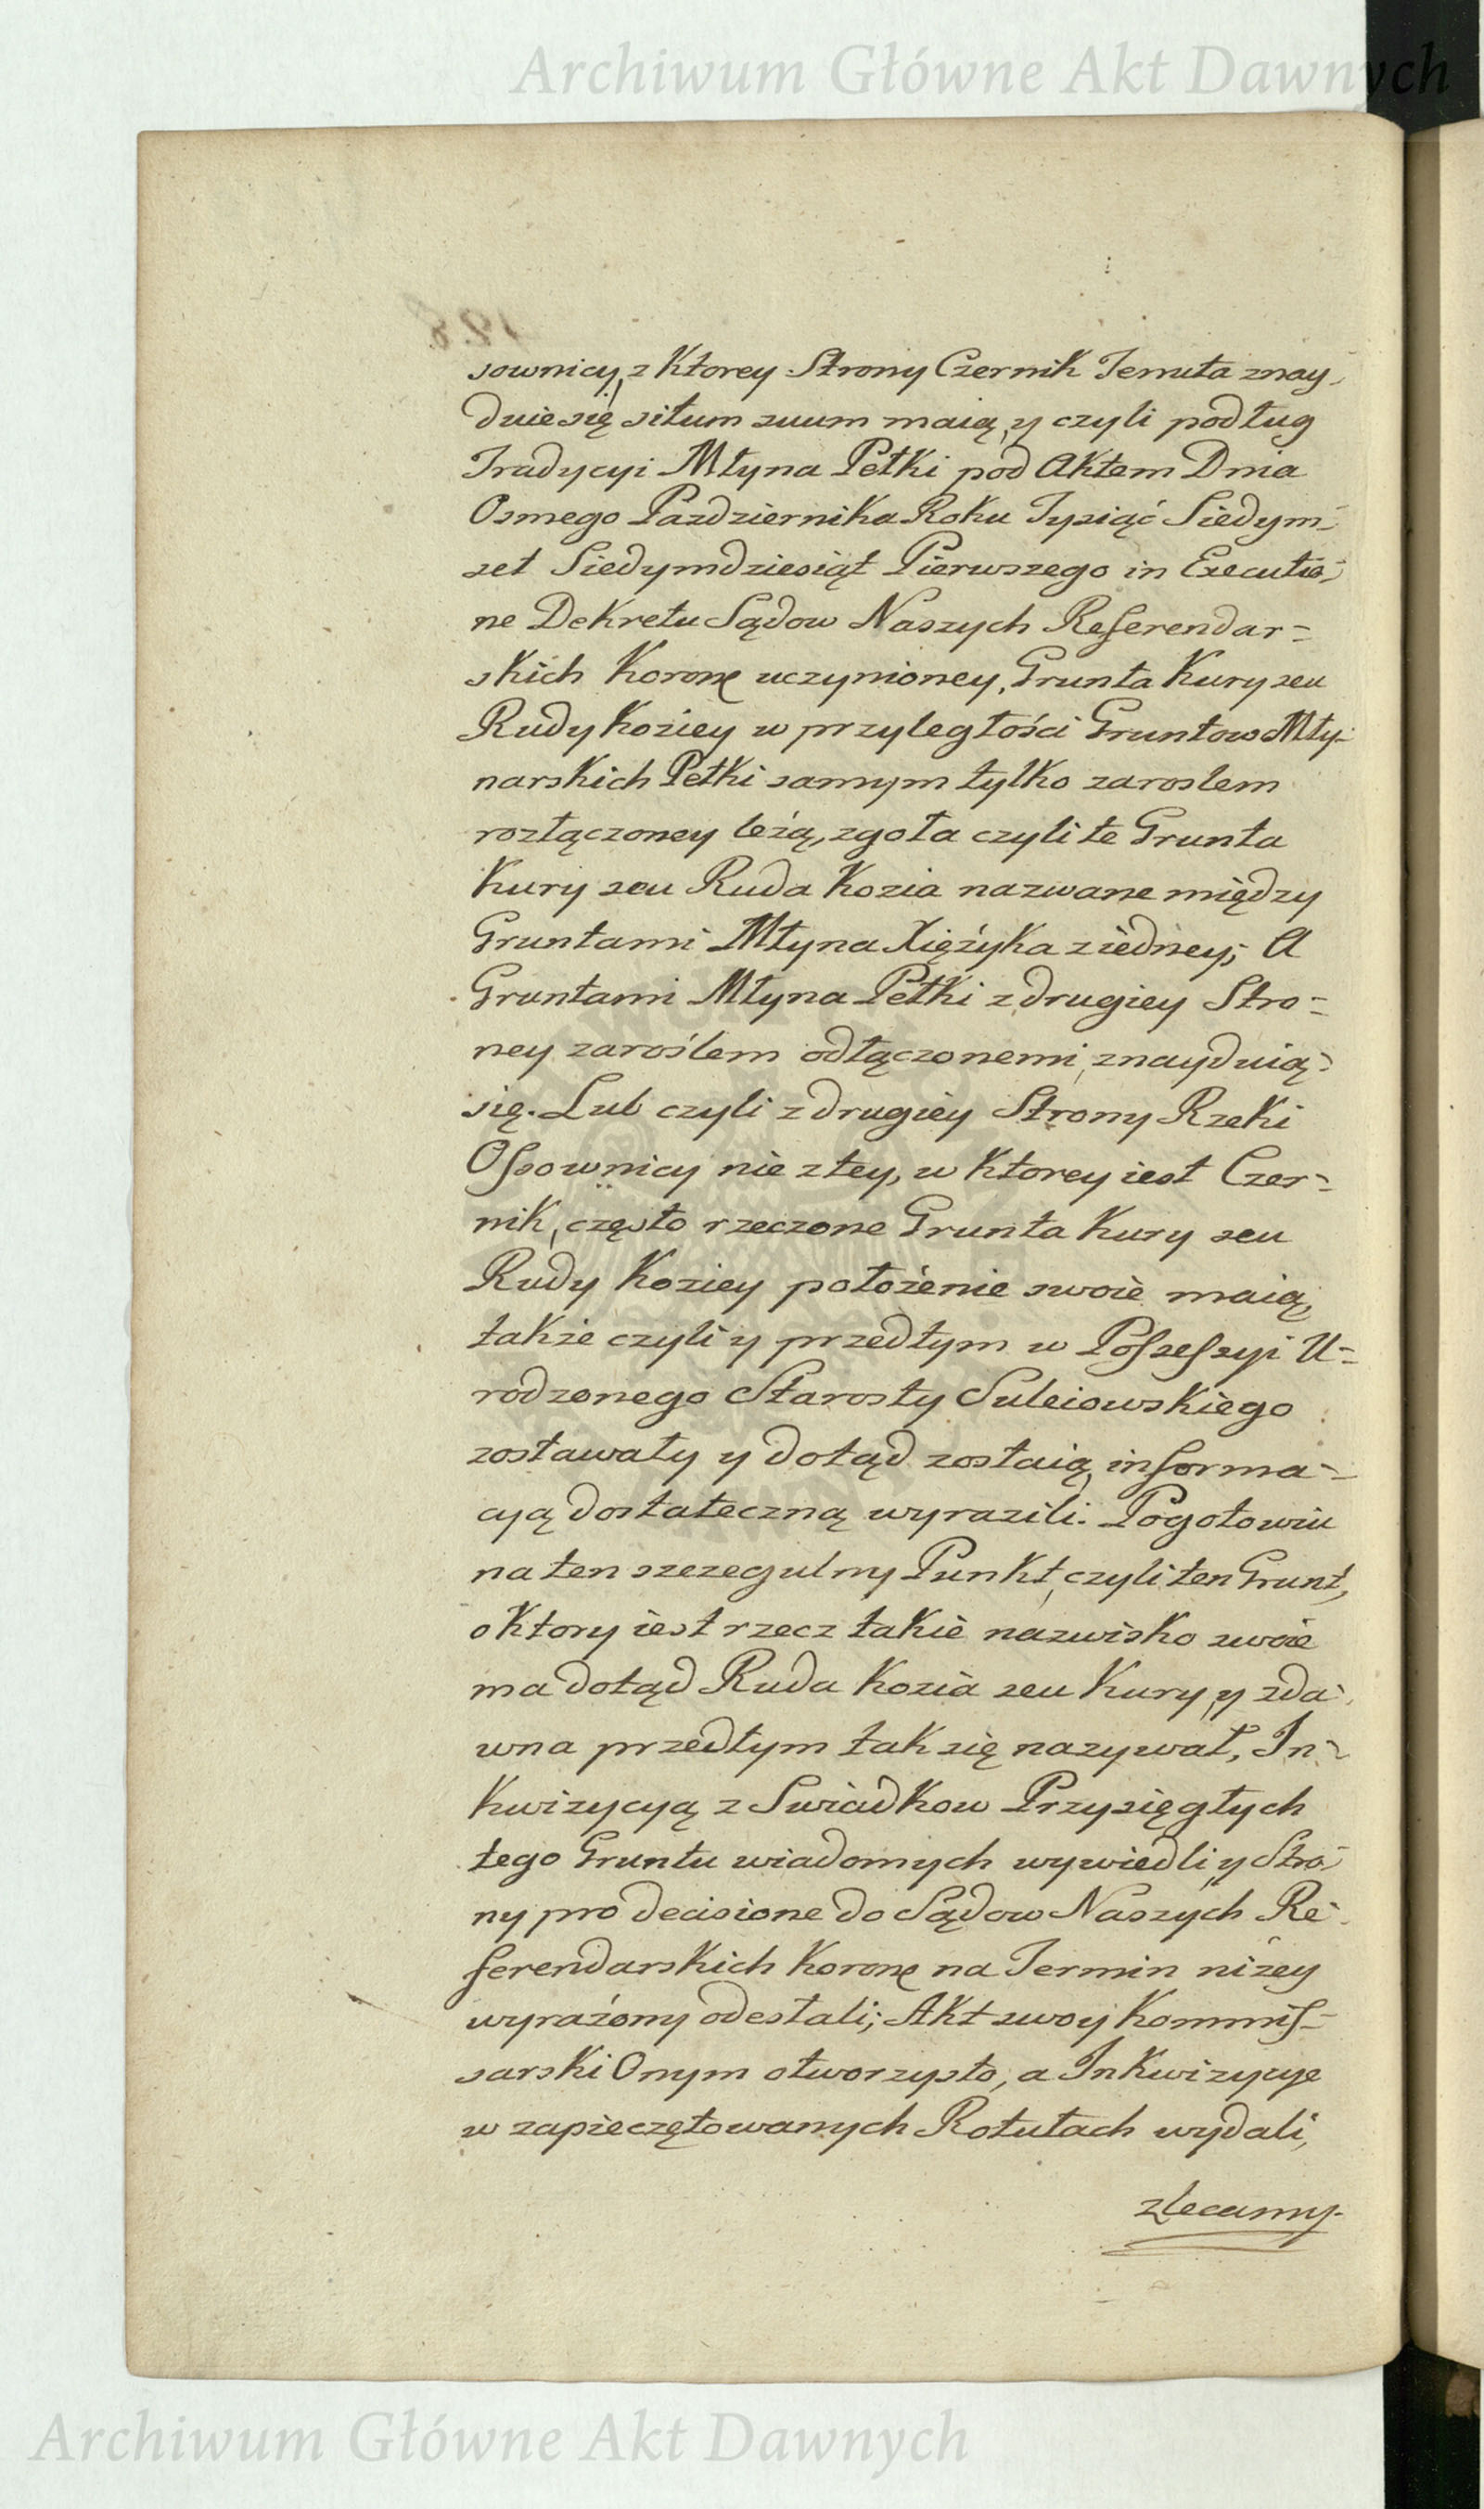 Archiwum Główne Akt Dawnych
128
sownicy, z Ktorey Strony Czernik Tenuta znay-
duie się situm suum maią, y czyli podług
Tradycyi Młyna Petki pod Aktem Dnia
Osmego Pazdziernika Roku Tysiąć Siedym-
set Siedymdziesiąt Pierwszego in Executio-
ne Dekretu Sądow Naszych Referendar=
skich Koronę uczynioney, Grunta Kury seu
Rudy Koziey w przyległości Gruntow Mły-
narskich Petki samym tylko zaroslem
rozłączoney leżą, zgoła czyli te Grunta
Kury seu Ruda Kozia nazwane między
Gruntami Młyna Xiężyka z iedney; A
Gruntami Młyna Petki z drugiey Stro=
ney zaroślem odłączonemi, znayduią
się. Lub czyli z drugiey Strony Rzeki
Ossownicy nie z tey, w Ktorey iest Czer=
nik, często rzeczone Grunta Kury seu
Rudy Koziey położenie swoie maią,
także czyli y przedtym w Possessyi U=
rodzonego Starosty Suleiowskiego
zostawały y dotąd zostaią, informa=
cyą dostateczną wyrazili: Pogotowiu
na ten szczegulny Punkt, czyli ten Grunt,
o Ktory iest rzecz takie nazwisko swoie
ma dotąd Ruda Kozia seu Kury, y zda-
wna przedtym tak się nazywał, In=
kwizycyą z Swiadkow Przysięgłych
tego Gruntu wiadomych wywiedli, y Stro-
ny pro decisione do Sądow Naszych Re-
ferendarskich Koronę na Termin niżey
wyrażony odesłali; Akt swoy Kommis=
sarski Onym otworzysto, a Inkwizycye
w zapieczętowanych Rotułach wydali,
zlecamy.
Archiwum Główne Akt Dawnych